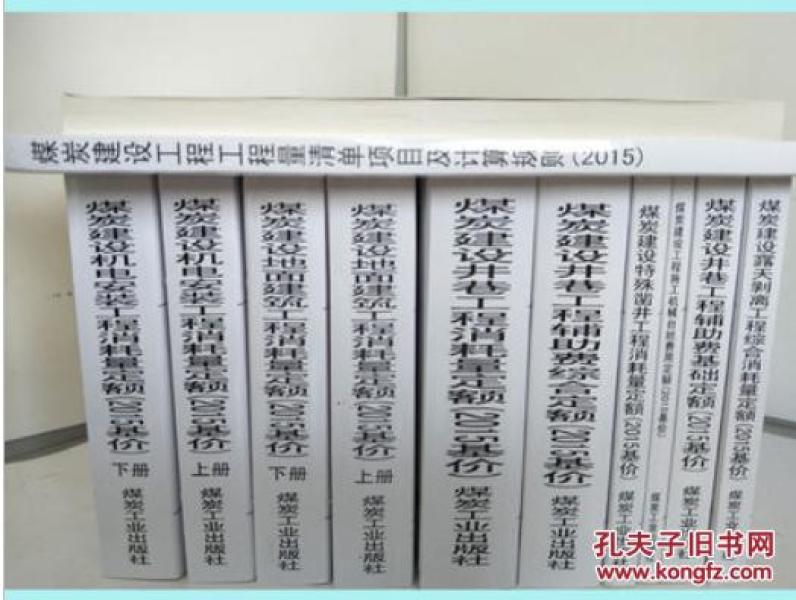 煤炭建设工程工程量清单项目及计算规则(2015)
煤炭建设机电安装工程消耗量定额(2015基价)
下册
煤炭工业出版社
煤炭建设机电安装工程消耗量定额(2015基价)
上册
煤炭工业出版社
煤炭建设地面建筑工程消耗量定额(2015基价)
下册
煤炭工业出版社
煤炭建设地面建筑工程消耗量定额(2015基价)
上册
煤炭工业出版社
煤炭建设井巷工程消耗量定额(2015基价)
煤炭工业出版社
煤炭建设井巷工程辅助费综合定额(2015基价)
煤炭工业出版社
煤炭建设特殊凿井工程消耗量定额(2015基价)
煤炭工业
煤炭建设工程施工机械台班费用定额(2015基价)
煤炭工业
煤炭建设井巷工程辅助费基础定额(2015基价)
煤炭工业
煤炭建设露天剥离工程综合消耗量定额(2015基价)
煤炭工业
孔夫子旧书网
www.kongfz.com